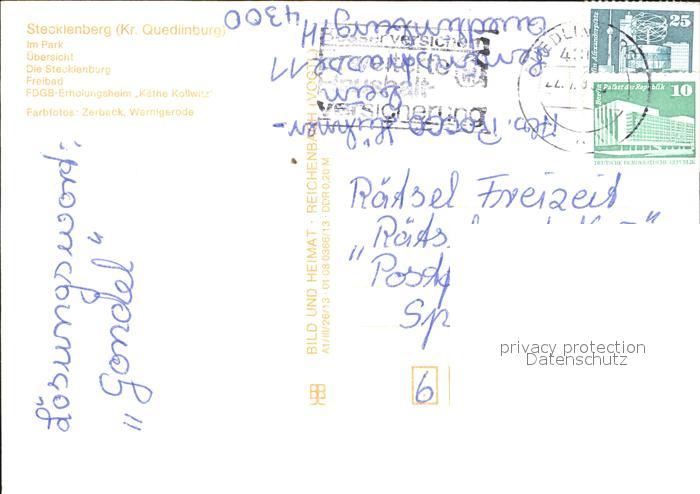 Stecklenberg (Kr. Quedlinburg)
Im Park
Übersicht
Die Stecklenburg
Freibad
FDGB-Erholungsheim „Käthe Kollwitz"
Farbfotos: Zerback, Wernigerode
Lösungswort:
„Gondel"
BILD UND HEIMAT · REICHENBACH (VOGTL)
A1/III/26/13 · 01 08 0366/13 · DDR 0,20 M
4300
Quedlinburg
straße 11
Abs. Rocco
versicherung
22.
25
Alexanderplatz
10
Berlin Palast der Republik
DEUTSCHE DEMOKRATISCHE REPUBLIK
Rätsel Freizeit
„Räts
Post
Sp
6
privacy protection
Datenschutz